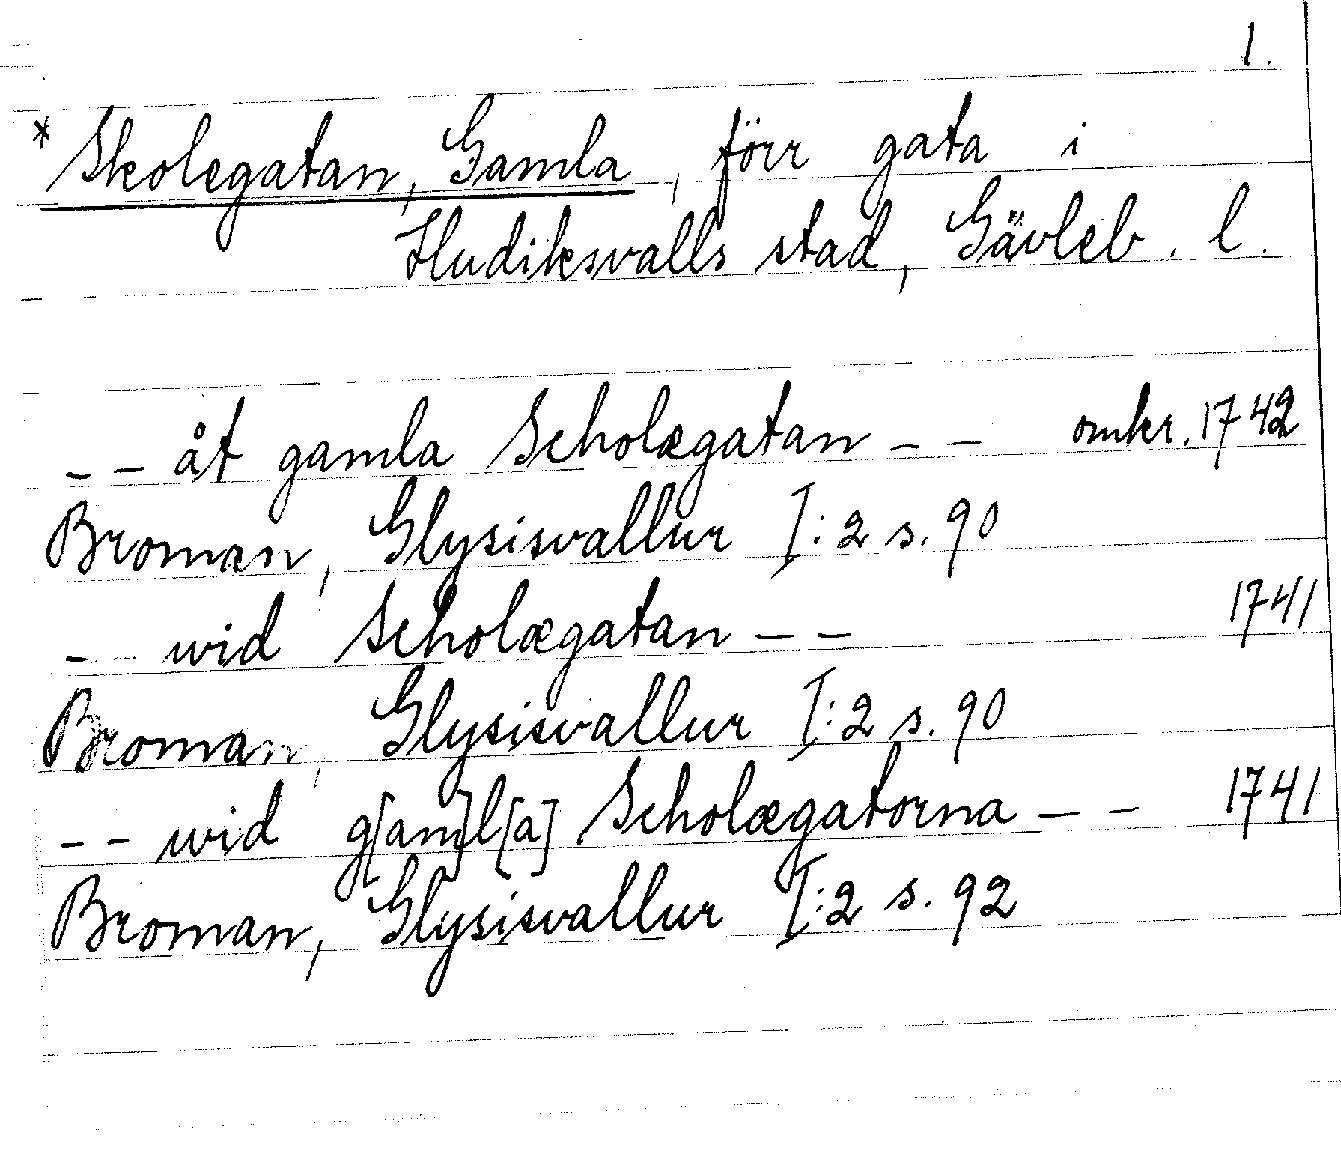 1.
*Skolegatan, Gamla, förr gata i
Hudiksvalls stad, Gävleb. l.
-- åt gamla Scholægatan -- omkr. 1742
Broman, Glysisvallur I:2 s. 90
-- wid Scholægatan -- 1741
Broman, Glysisvallur I:2 s. 90
-- wid g[am]l[a] Scholægatorna -- 1741
Broman, Glysisvallur I:2 s. 92